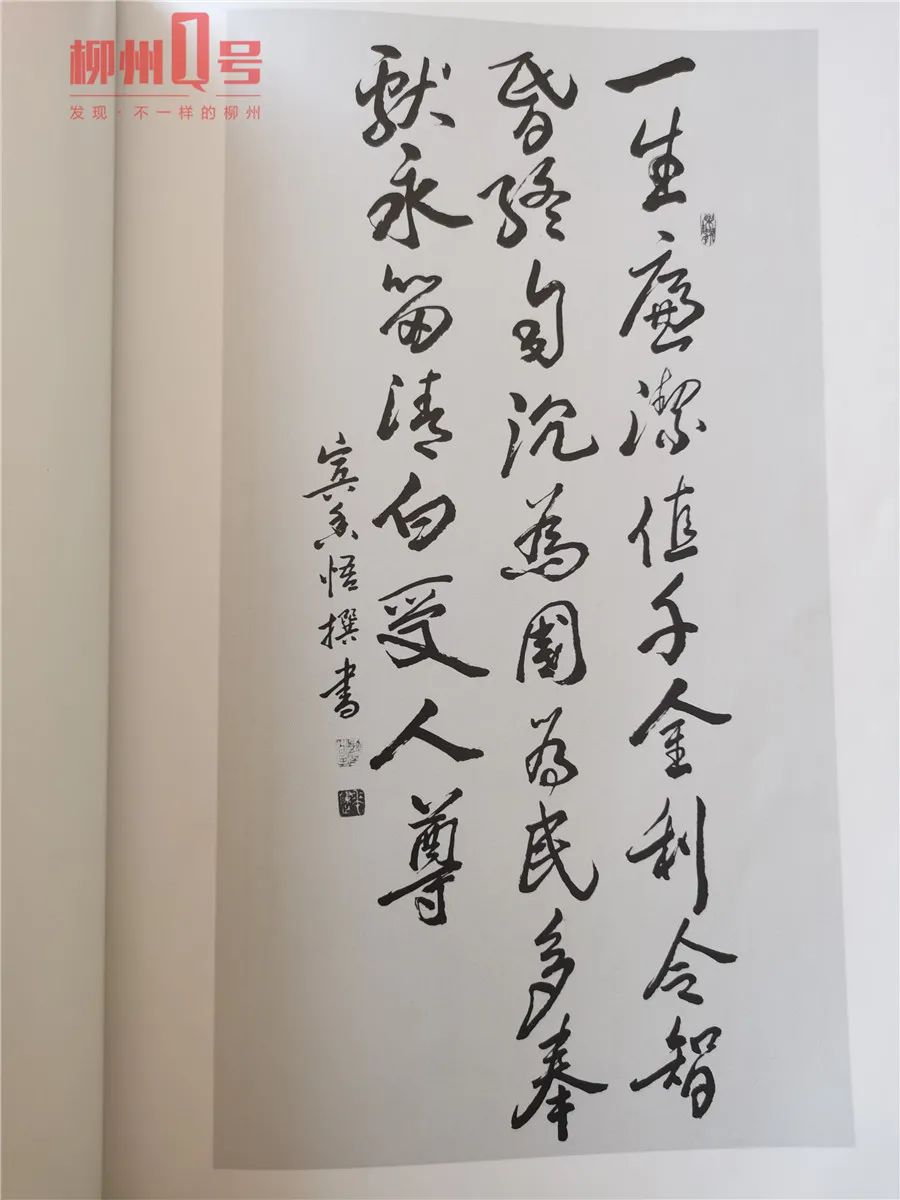 柳州1号
发现·不一样的柳州
一生廉潔值千金利令智
昏終自沉為國為民多奉
獻永留清白受人尊
賓長悟撰書